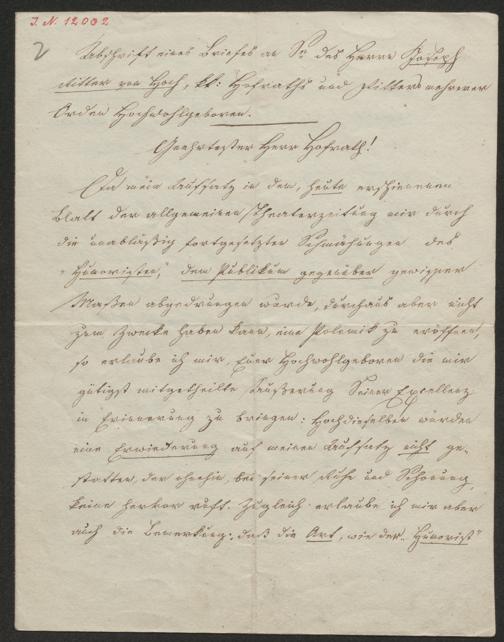 I. N. 12002
2
Abschrift eines Briefes an Se. des Herrn Joseph
Ritter von Hoch, kk: Hofraths und Ritters mehrerer
Orden Hochwohlgeboren.
Geehrtester Herr Hofrath!
Da mein Aufsatz in dem, heute erschienenen
Blatt der allgemeinen Theaterzeitung mir durch
die unablässig fortgesetzten Schmähungen des
"Humoristen," dem Publikum gegenüber gewisser
Maßen abgedrungen wurde, durchaus aber nicht
zum Zwecke haben kann, eine Polemik zu eröffnen,
so erlaube ich mir, Euer Hochwohlgeboren die mir
gütigst mitgetheilte Äußerung Seiner Excellenz
in Erinnerung zu bringen: Hochdieselben würden
eine Erwiederung auf meinen Aufsatz nicht ge-
statten, der ohnehin, bei seiner Ruhe und Schonung,
keine hervor ruft. Zugleich erlaube ich mir aber
auch die Bemerkung: daß die Art, wie der "Humorist"